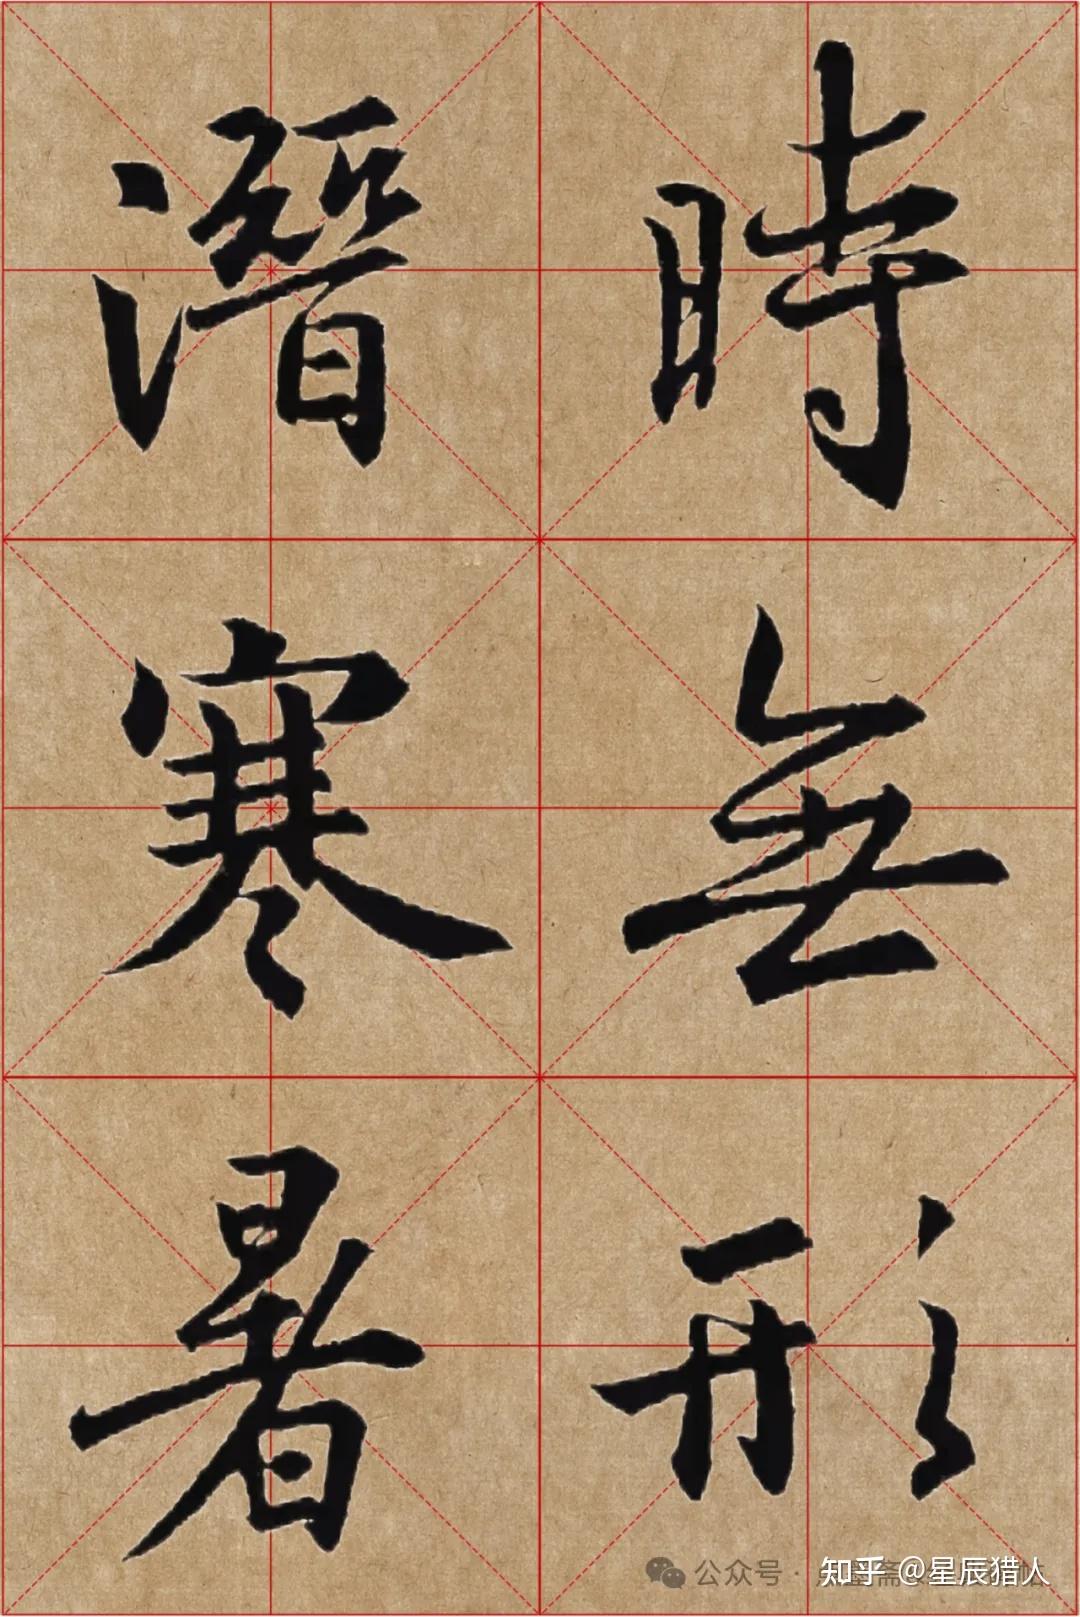 時無形
潛寒暑
知乎 @星辰猎人
公众号